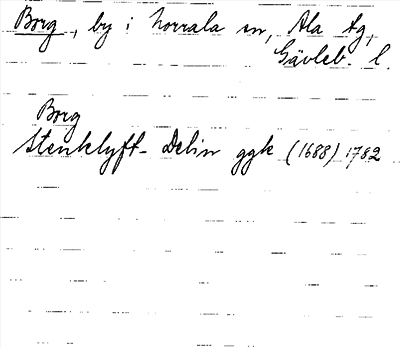 Borg, by i Norrala sn, Ala tg,
Gävleb. l.
Borg
Stenklyft- Delin ggk (1688) 1782